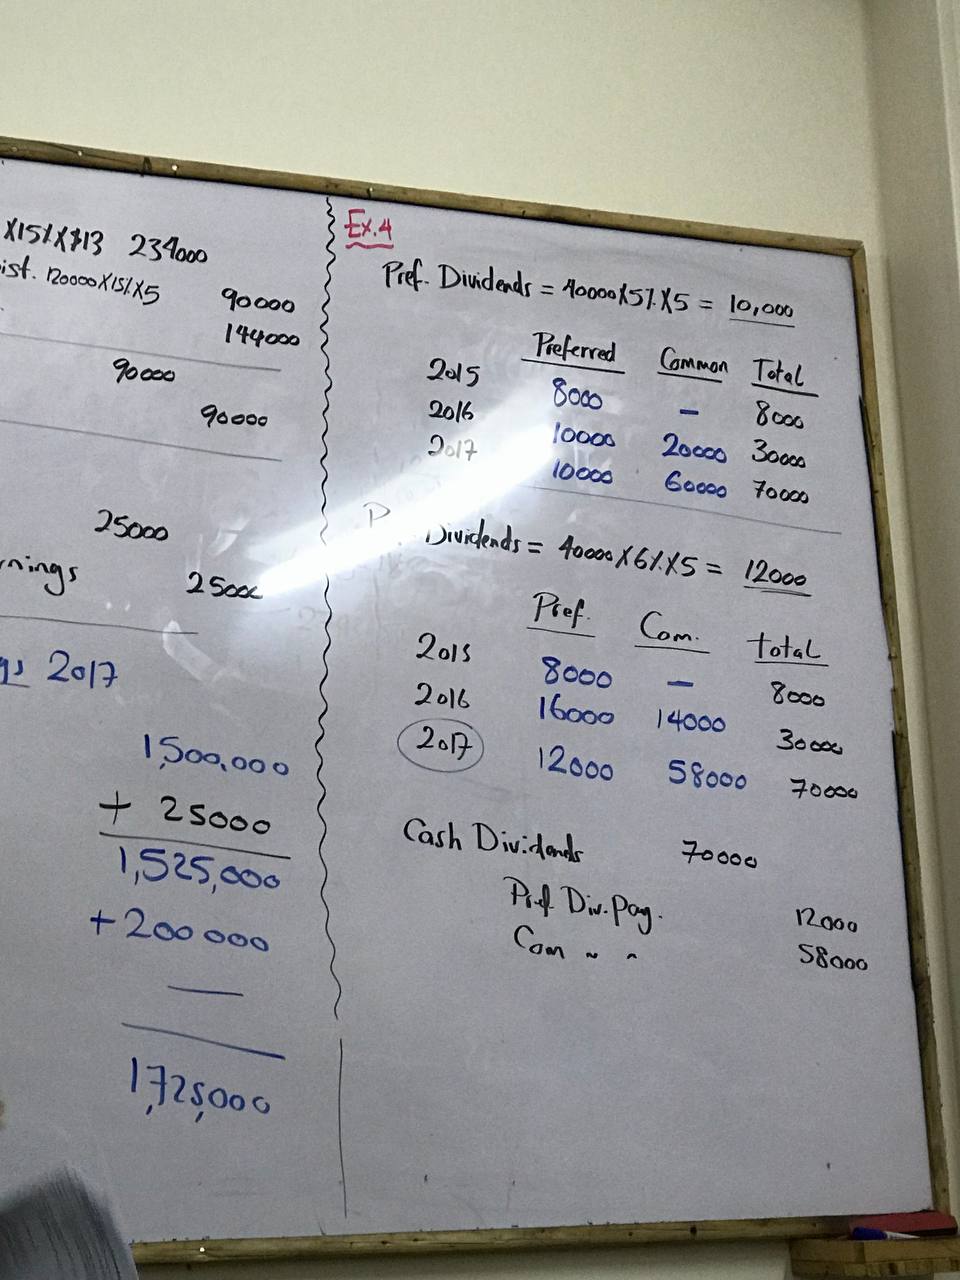 X15%X$13 234000
ist. 120000X15%X5 90000
144000
90000
90000
25000
rnings 25000
gs 2017
1,500,000
+ 25000
1,525,000
+200000
—
1,725,000
Ex.4
Pref. Dividends = 40000X5%X5 = 10,000
Preferred Common Total
2015 8000 — 8000
2016 10000 20000 30000
2017 10000 60000 70000
P Dividends = 40000X6%X5 = 12000
Pref. Com. total
2015 8000 — 8000
2016 16000 14000 30000
2017 12000 58000 70000
Cash Dividends 70000
Pref. Div. Pay. 12000
Com ~ ~ 58000